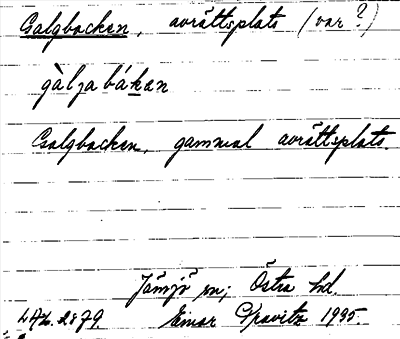 Galgbacken, avrättsplats (var?)
gàlja bákan
Galgbacken, gammal avrättsplats.
Jämjö sn; Östra hd.
Einar 1935.